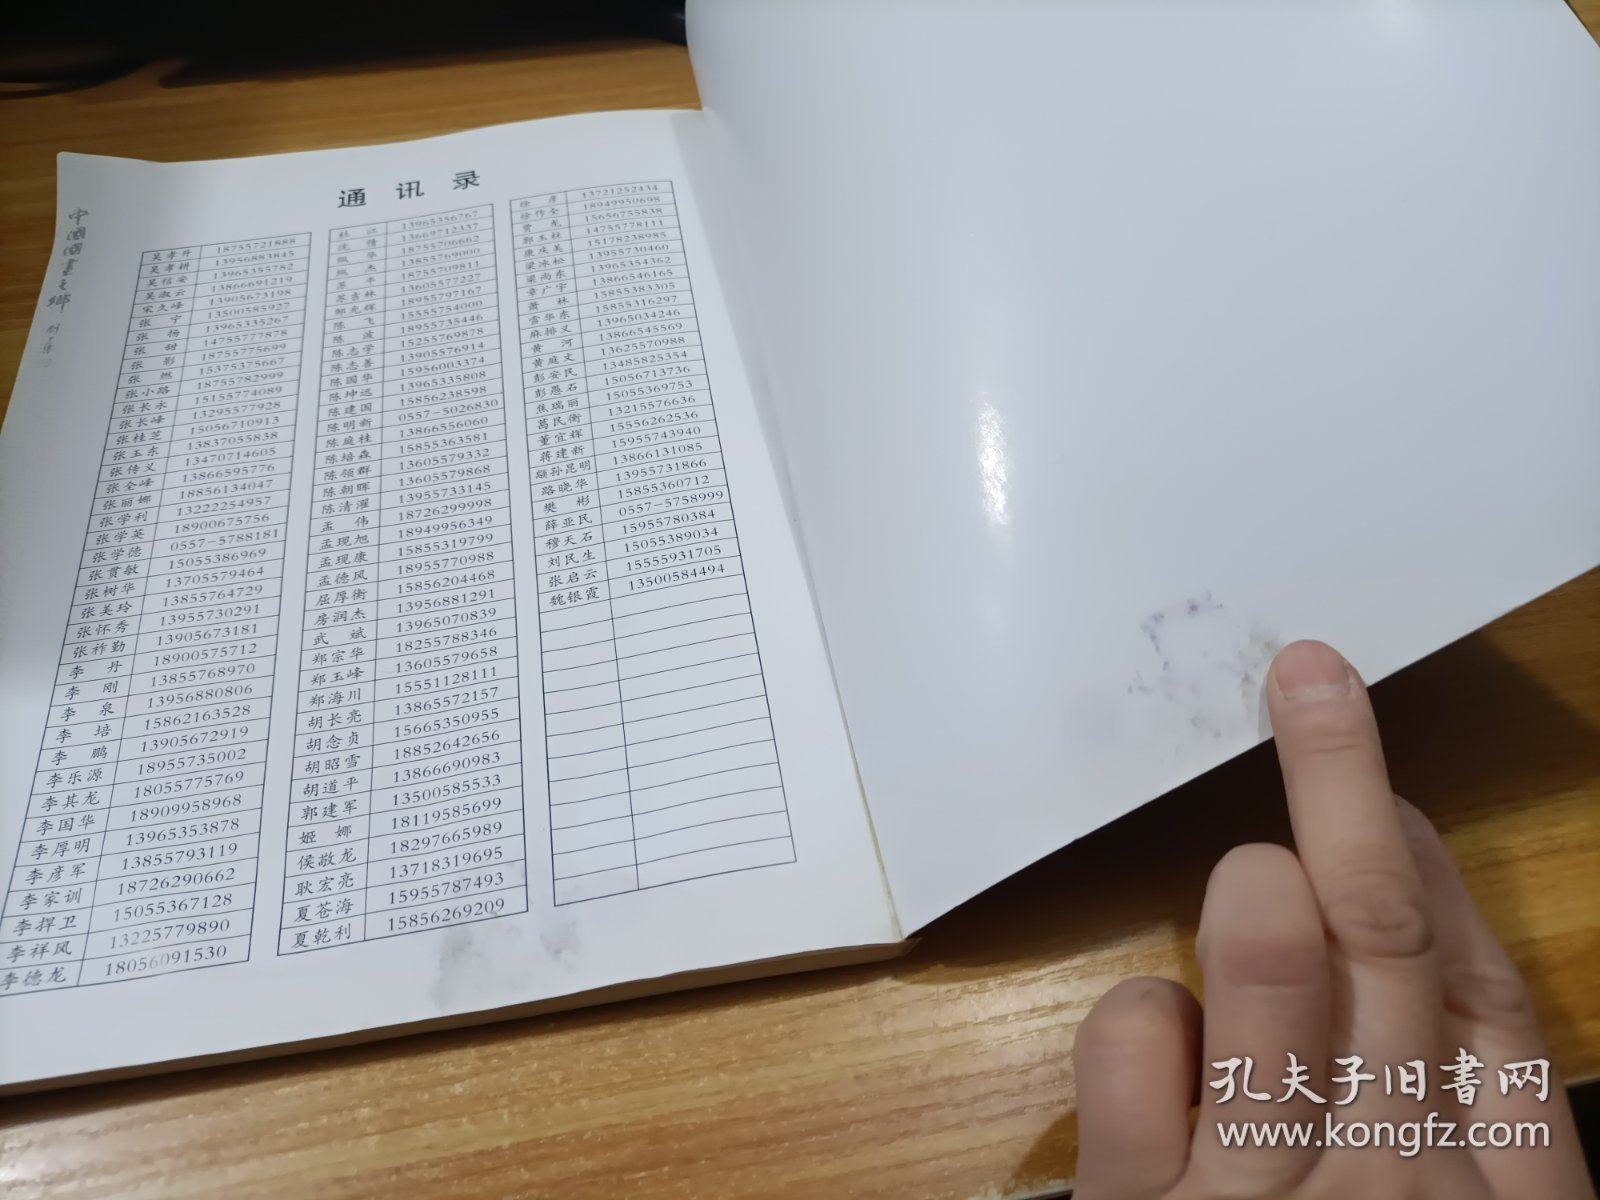 通讯录
中國國畫之鄉
吴孝升 18755721888
吴孝耕 13956883845
吴信安 13965355782
吴淑云 13866691219
宋久峰 13905673198
张宁 13500585927
张杨 13965335267
张甜 14755777878
张影 18755775699
张燃 15375375667
张小路 18755782999
张长永 15155774089
张长峰 13295577928
张桂芝 15056710913
张玉东 13837055838
张传义 13470714605
张全峰 13866595776
张丽娜 18856134047
张学利 13222254957
张学英 18900675756
张学德 0557-5788181
张贯敏 15055386969
张树华 13705579464
张美玲 13855764729
张怀秀 13955730291
张祚勤 13905673181
李丹 18900575712
李刚 13855768970
李泉 13956880806
李培 15862163528
李鹏 13905672919
李乐源 18955735002
李其龙 18055775769
李国华 18909958968
李厚明 13965353878
李彦军 13855793119
李家训 18726290662
李捍卫 15055367128
李祥风 13225779890
李德龙 18056091530
杜江 13965356767
沈情 13669712337
纵华 18755706662
纵杰 13855769000
苏平 18755709811
苏吉林 13605577227
邹光辉 18955797167
陈飞 15555754000
陈波 18955735446
陈志学 15255769878
陈志善 13905576914
陈国华 15956003374
陈坤远 13965335808
陈建国 15856238598
陈明新 0557-5026830
陈庭桂 13866556060
陈培森 15855363581
陈领群 13605579332
陈朝晖 13605579868
陈清濯 13955733145
孟伟 18726299998
孟现旭 18949956349
孟现康 15855319799
孟德风 18955770988
屈厚衡 15856204468
房润杰 13956881291
武斌 13965070839
郑宗华 18255788346
郑玉峰 13605579658
郑海川 15551128111
胡长亮 13865572157
胡念贞 15665350955
胡昭雪 18852642656
胡道平 13866690983
郭建军 13500585533
姬娜 18119585699
侯敬龙 18297665989
耿宏亮 13718319695
夏苍海 15955787493
夏乾利 15856269209
徐彦 13721252434
徐传全 18949950698
贾龙 15656755838
郭玉柱 14755778111
康庆美 15178238985
梁冰松 13955730460
梁尚东 13965354362
章广宇 13866546165
萧林 15855383305
雪华东 15855316297
麻排义 13965034246
黄河 13866545569
黄庭文 13625570988
彭安民 13485825354
彭愚石 15056713736
焦瑞丽 15055369753
葛民衡 13215576636
董宜辉 15556262536
蒋建新 15955743940
颛孙昆明 13866131085
路晓华 13955731866
樊彬 15855360712
薛亚民 0557-5758999
穆天石 15955780384
刘民生 15055389034
张启云 15555931705
魏银霞 13500584494
孔夫子旧书网
www.kongfz.com